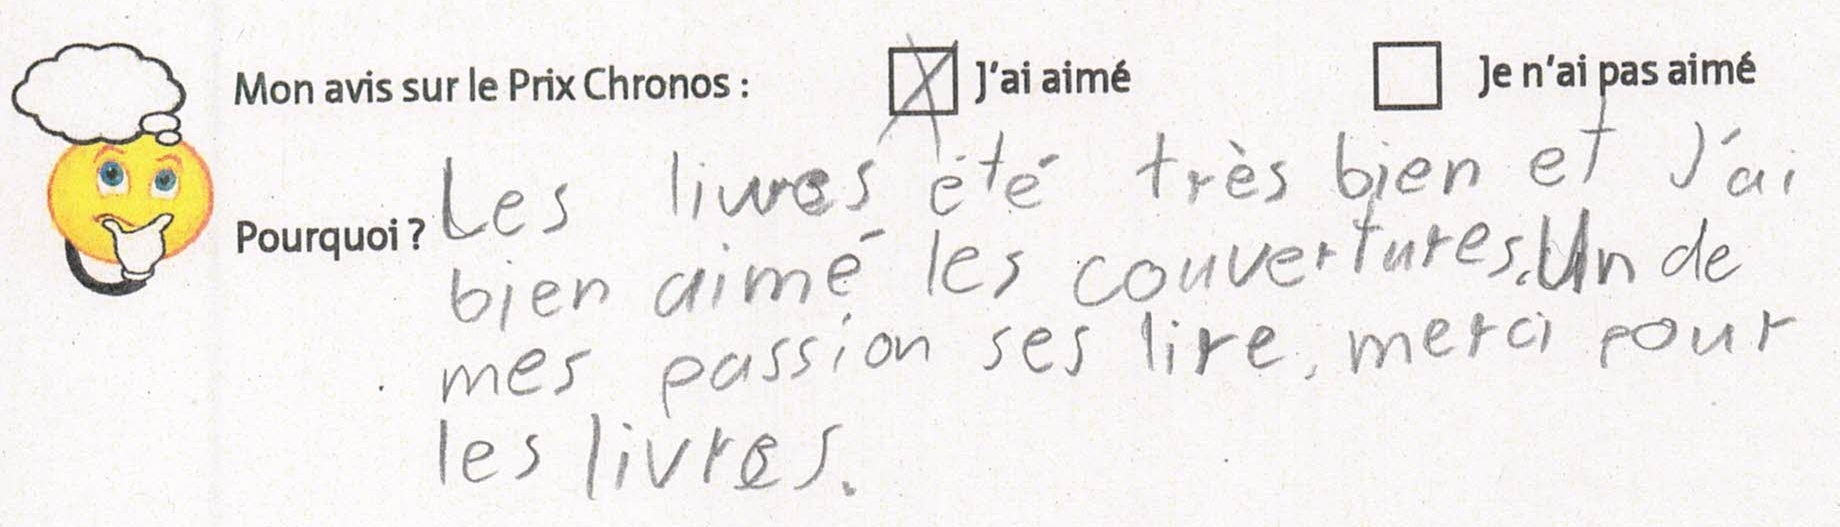 Mon avis sur le Prix Chronos : J'ai aimé Je n'ai pas aimé
Pourquoi ? Les livres été très bien et J'ai
bien aimé les couvertures. Un de
mes passion ses lire, merci pour
les livres.